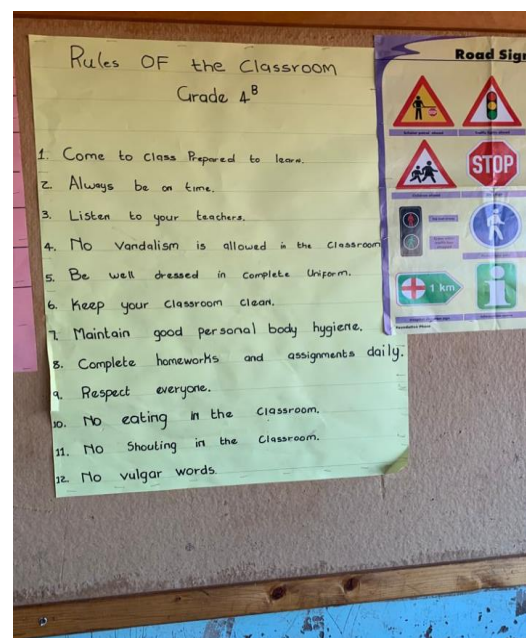 Rules OF the Classroom
Grade 4B
1. Come to class Prepared to learn.
2. Always be on time.
3. Listen to your teachers.
4. No Vandalism is allowed in the Classroom
5. Be well dressed in Complete Uniform.
6. Keep your Classroom Clean.
7. Maintain good personal body hygiene.
8. Complete homeworks and assignments daily.
9. Respect everyone.
10. No eating in the Classroom.
11. No Shouting in the Classroom.
12. No vulgar words.
Road Sign
STOP
1 km
i
Foundation Phase